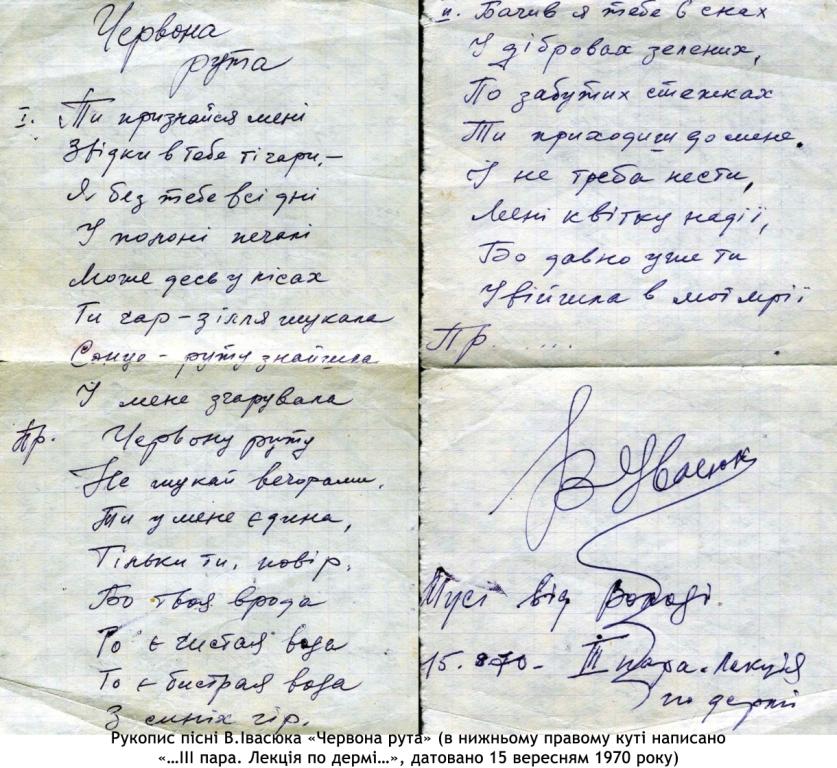 Червона
рута
I. Ти признайся мені
Звідки в тебе ті чари,-
Я без тебе всі дні
У полоні печалі
Може десь у лісах
Ти чар-зілля шукала
Сонце-руту знайшла
І мене зчарувала
Пр. Червону руту
Не шукай вечорами,
Ти у мене єдина,
Тільки ти, повір.
Бо твоя врода
То є чистая вода
То є бистрая вода
З синіх гір.
II. Бачив я тебе в снах
У дібровах зелених,
По забутих стежках
Ти приходиш до мене.
І не треба нести,
Мені квітку надії,
Бо давно уже ти
Увійшла в мої мрії
Пр. ....
В Івасюк
від Володі
15. 970- III пара. Лекція
по дермі
Рукопис пісні В.Івасюка «Червона рута» (в нижньому правому куті написано
«…III пара. Лекція по дермі…», датовано 15 вересням 1970 року)